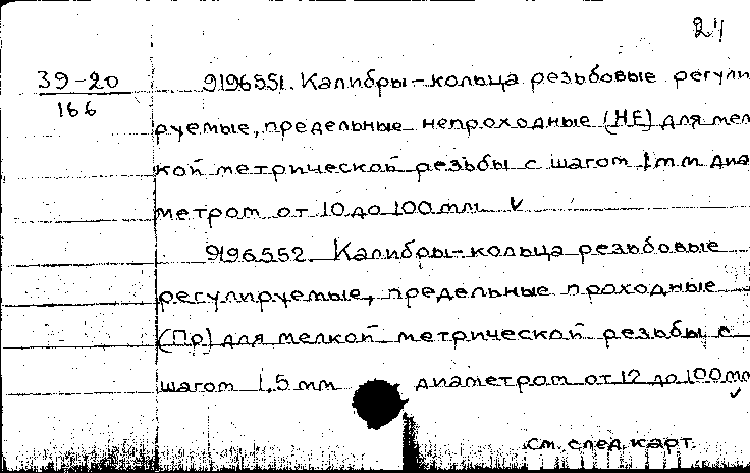 24
39-20
166
9196551. Калибры-кольца резьбовые регули
руемые, предельные непроходные (НЕ) для мел
кой метрической резьбы с шагом 1 мм диа
метром от 10 до 100 мм ✓
9196552. Калибры-кольца резьбовые
регулируемые, предельные проходные
(Пр) для мелкой метрической резьбы с
шагом 1,5 мм диаметром от 12 до 100 мм
✓
см. след. карт.